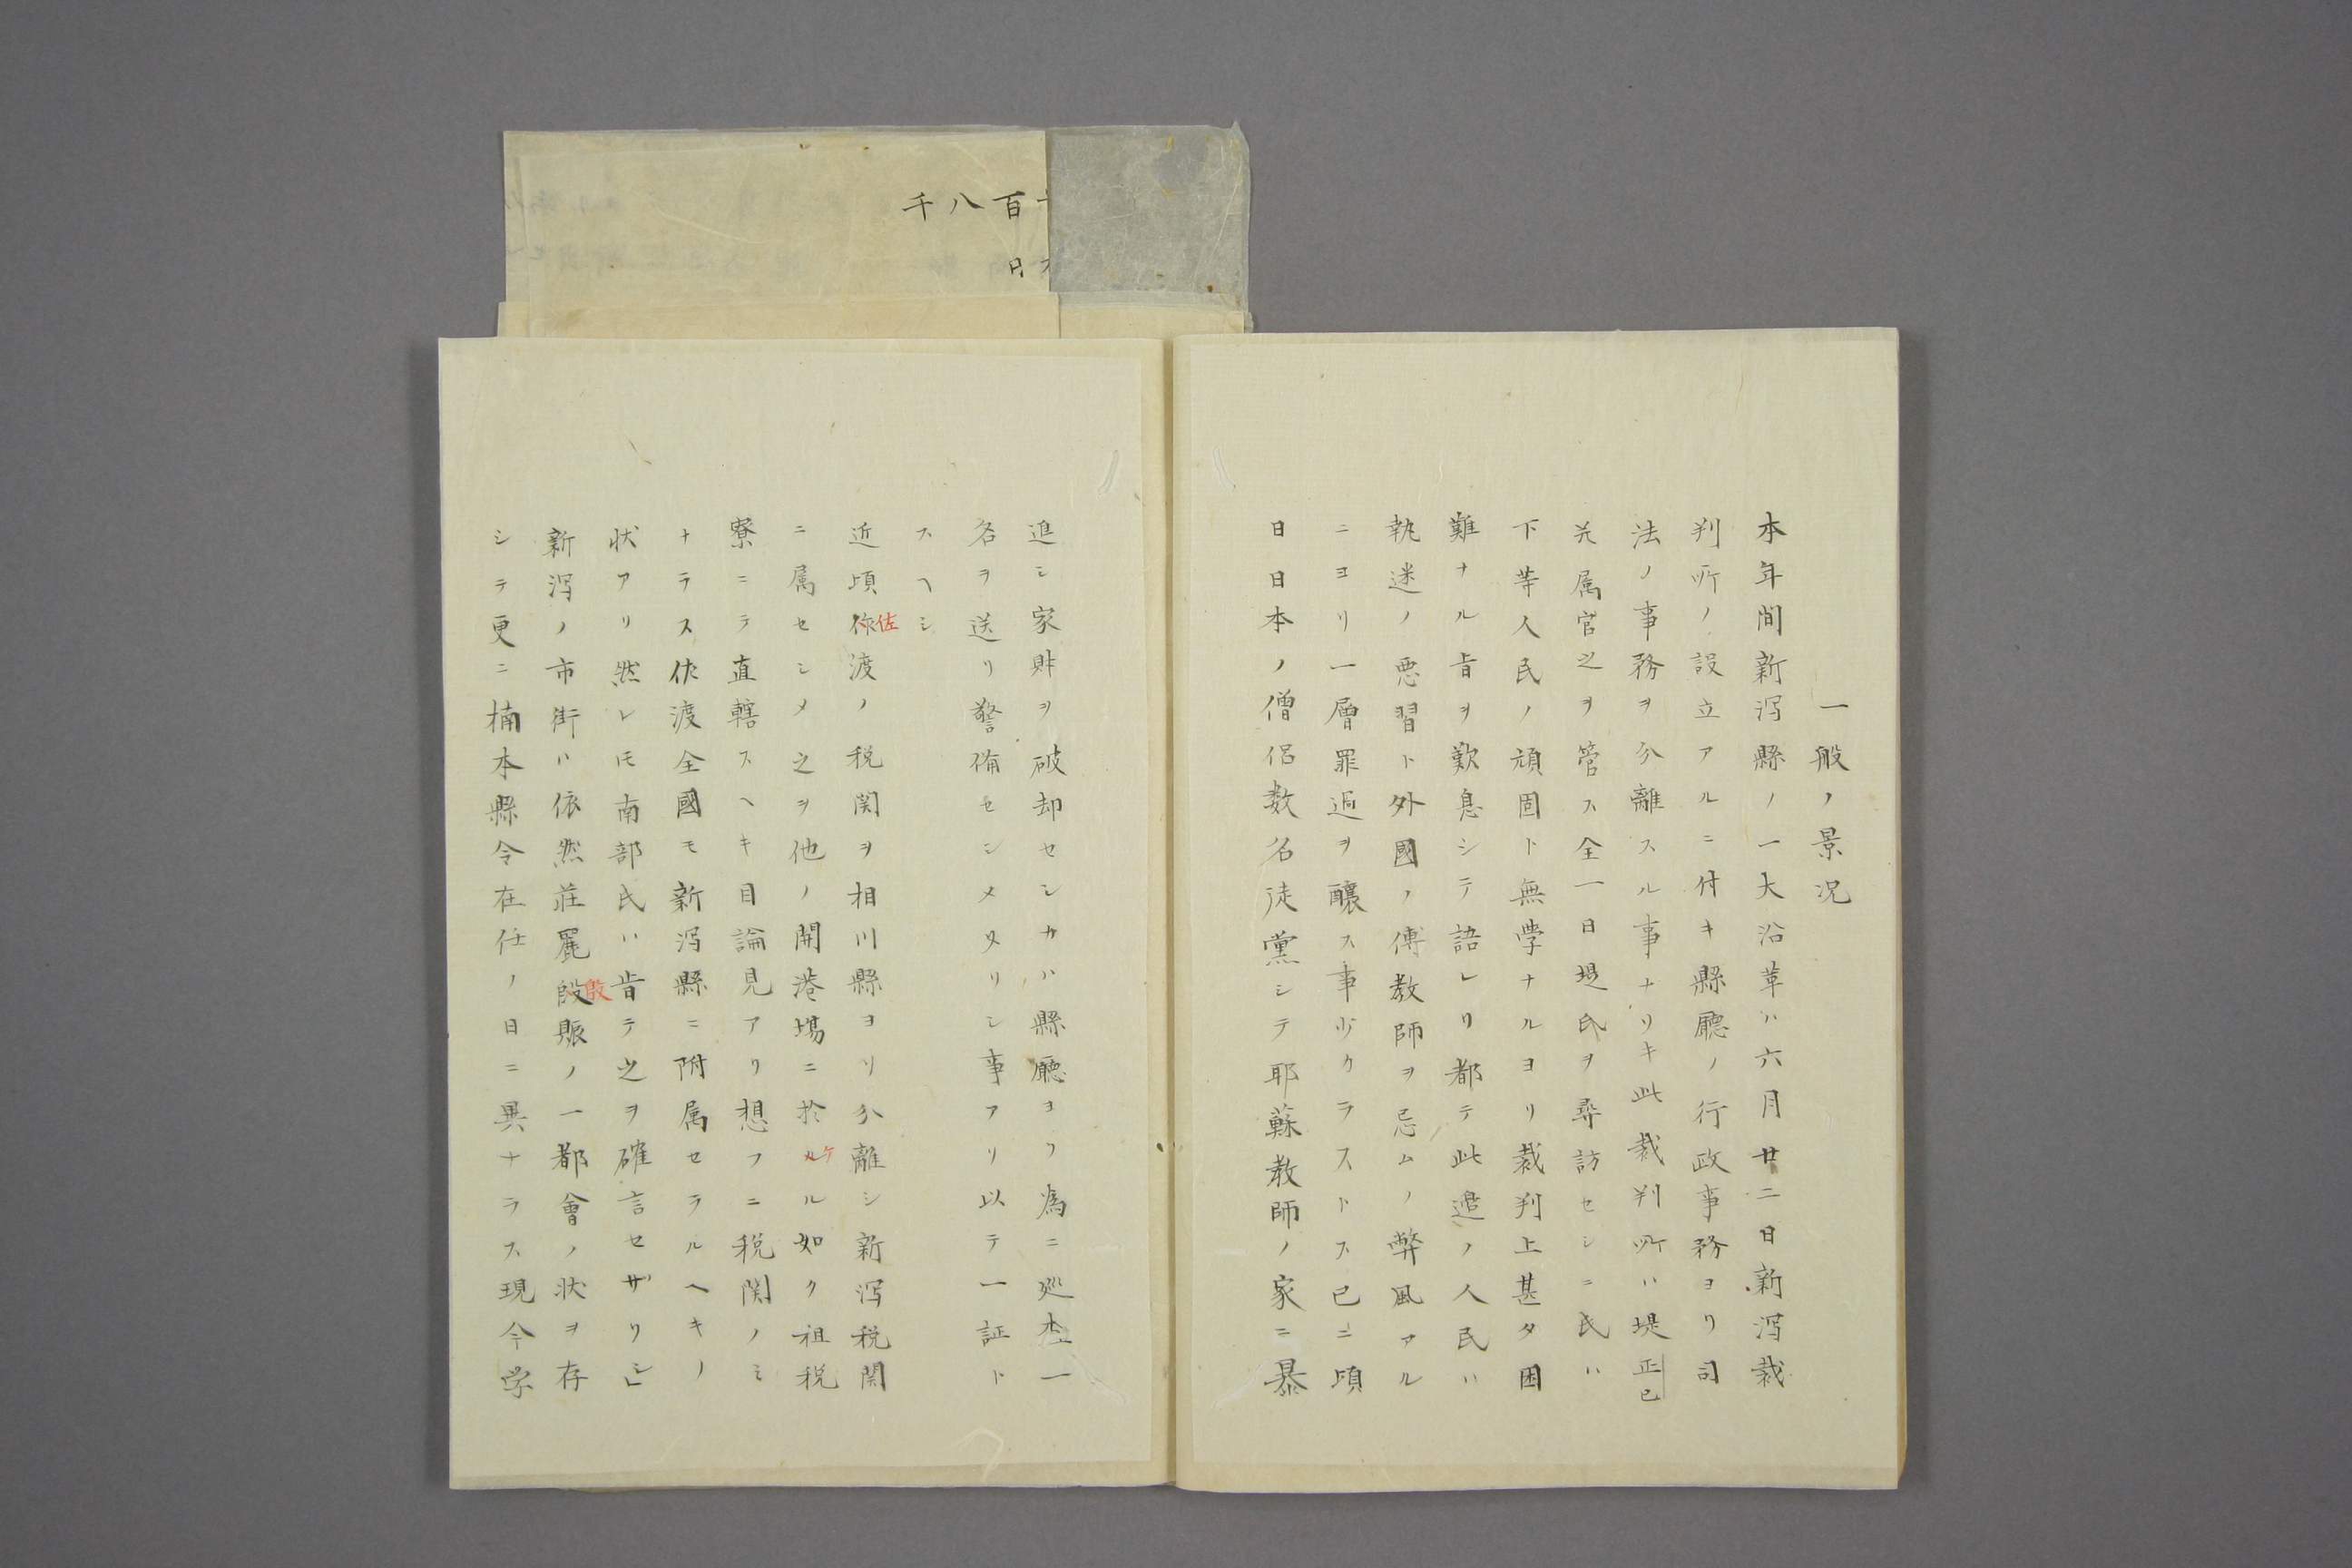 一般ノ景况
本年間新潟縣ノ一大沿革ハ六月廿二日新潟裁
判所ノ設立アルニ付キ縣廳ノ行政事務ヨリ司
法ノ事務ヲ分離スル事ナリキ此裁判所ハ堤正己
并属官之ヲ管ス仝一日堤氏ヲ尋訪セシニ氏ハ
下等人民ノ頑固ト無學ナルヨリ裁判上甚タ困
難ナル旨ヲ歎息シテ語レリ都テ此邉ノ人民ハ
執迷ノ悪習ト外國ノ傳教師ヲ忌ムノ弊風アル
ニヨリ一層罪過ヲ醸ス事少クラストス已ニ頃
日日本ノ僧侶数名徒黨シテ耶蘇教師ノ家ニ暴
進シ家財ヲ破却センカハ縣廳ヨリ為ニ廵査一
名ヲ送リ警備センメタリシ事アリ以テ一証ト
スヘシ
近頃佐渡ノ税関ヲ相川縣ヨリ分離シ新潟税関
ニ属セシメ之ヲ他ノ開港場ニ於ケル如ク租税
寮ニテ直轄スヘキ目論見アリ想フニ税関ノミ
ナラス佐渡全國モ新潟縣ニ附属セラルヘキノ
状アリ然レ𪜈南部氏ハ肯テ之ヲ確言セザリシ
新潟ノ市街ハ依然荘麗殷賑ノ一都會ノ状ヲ存
シテ更ニ楠本縣令在任ノ日ニ異ナラス現今学
千八百
日